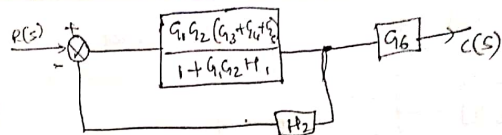 R(S)
+
-
G₁G₂(G₃+G₄+G₅)
1+G₁G₂H₁
G6
C(S)
H₂